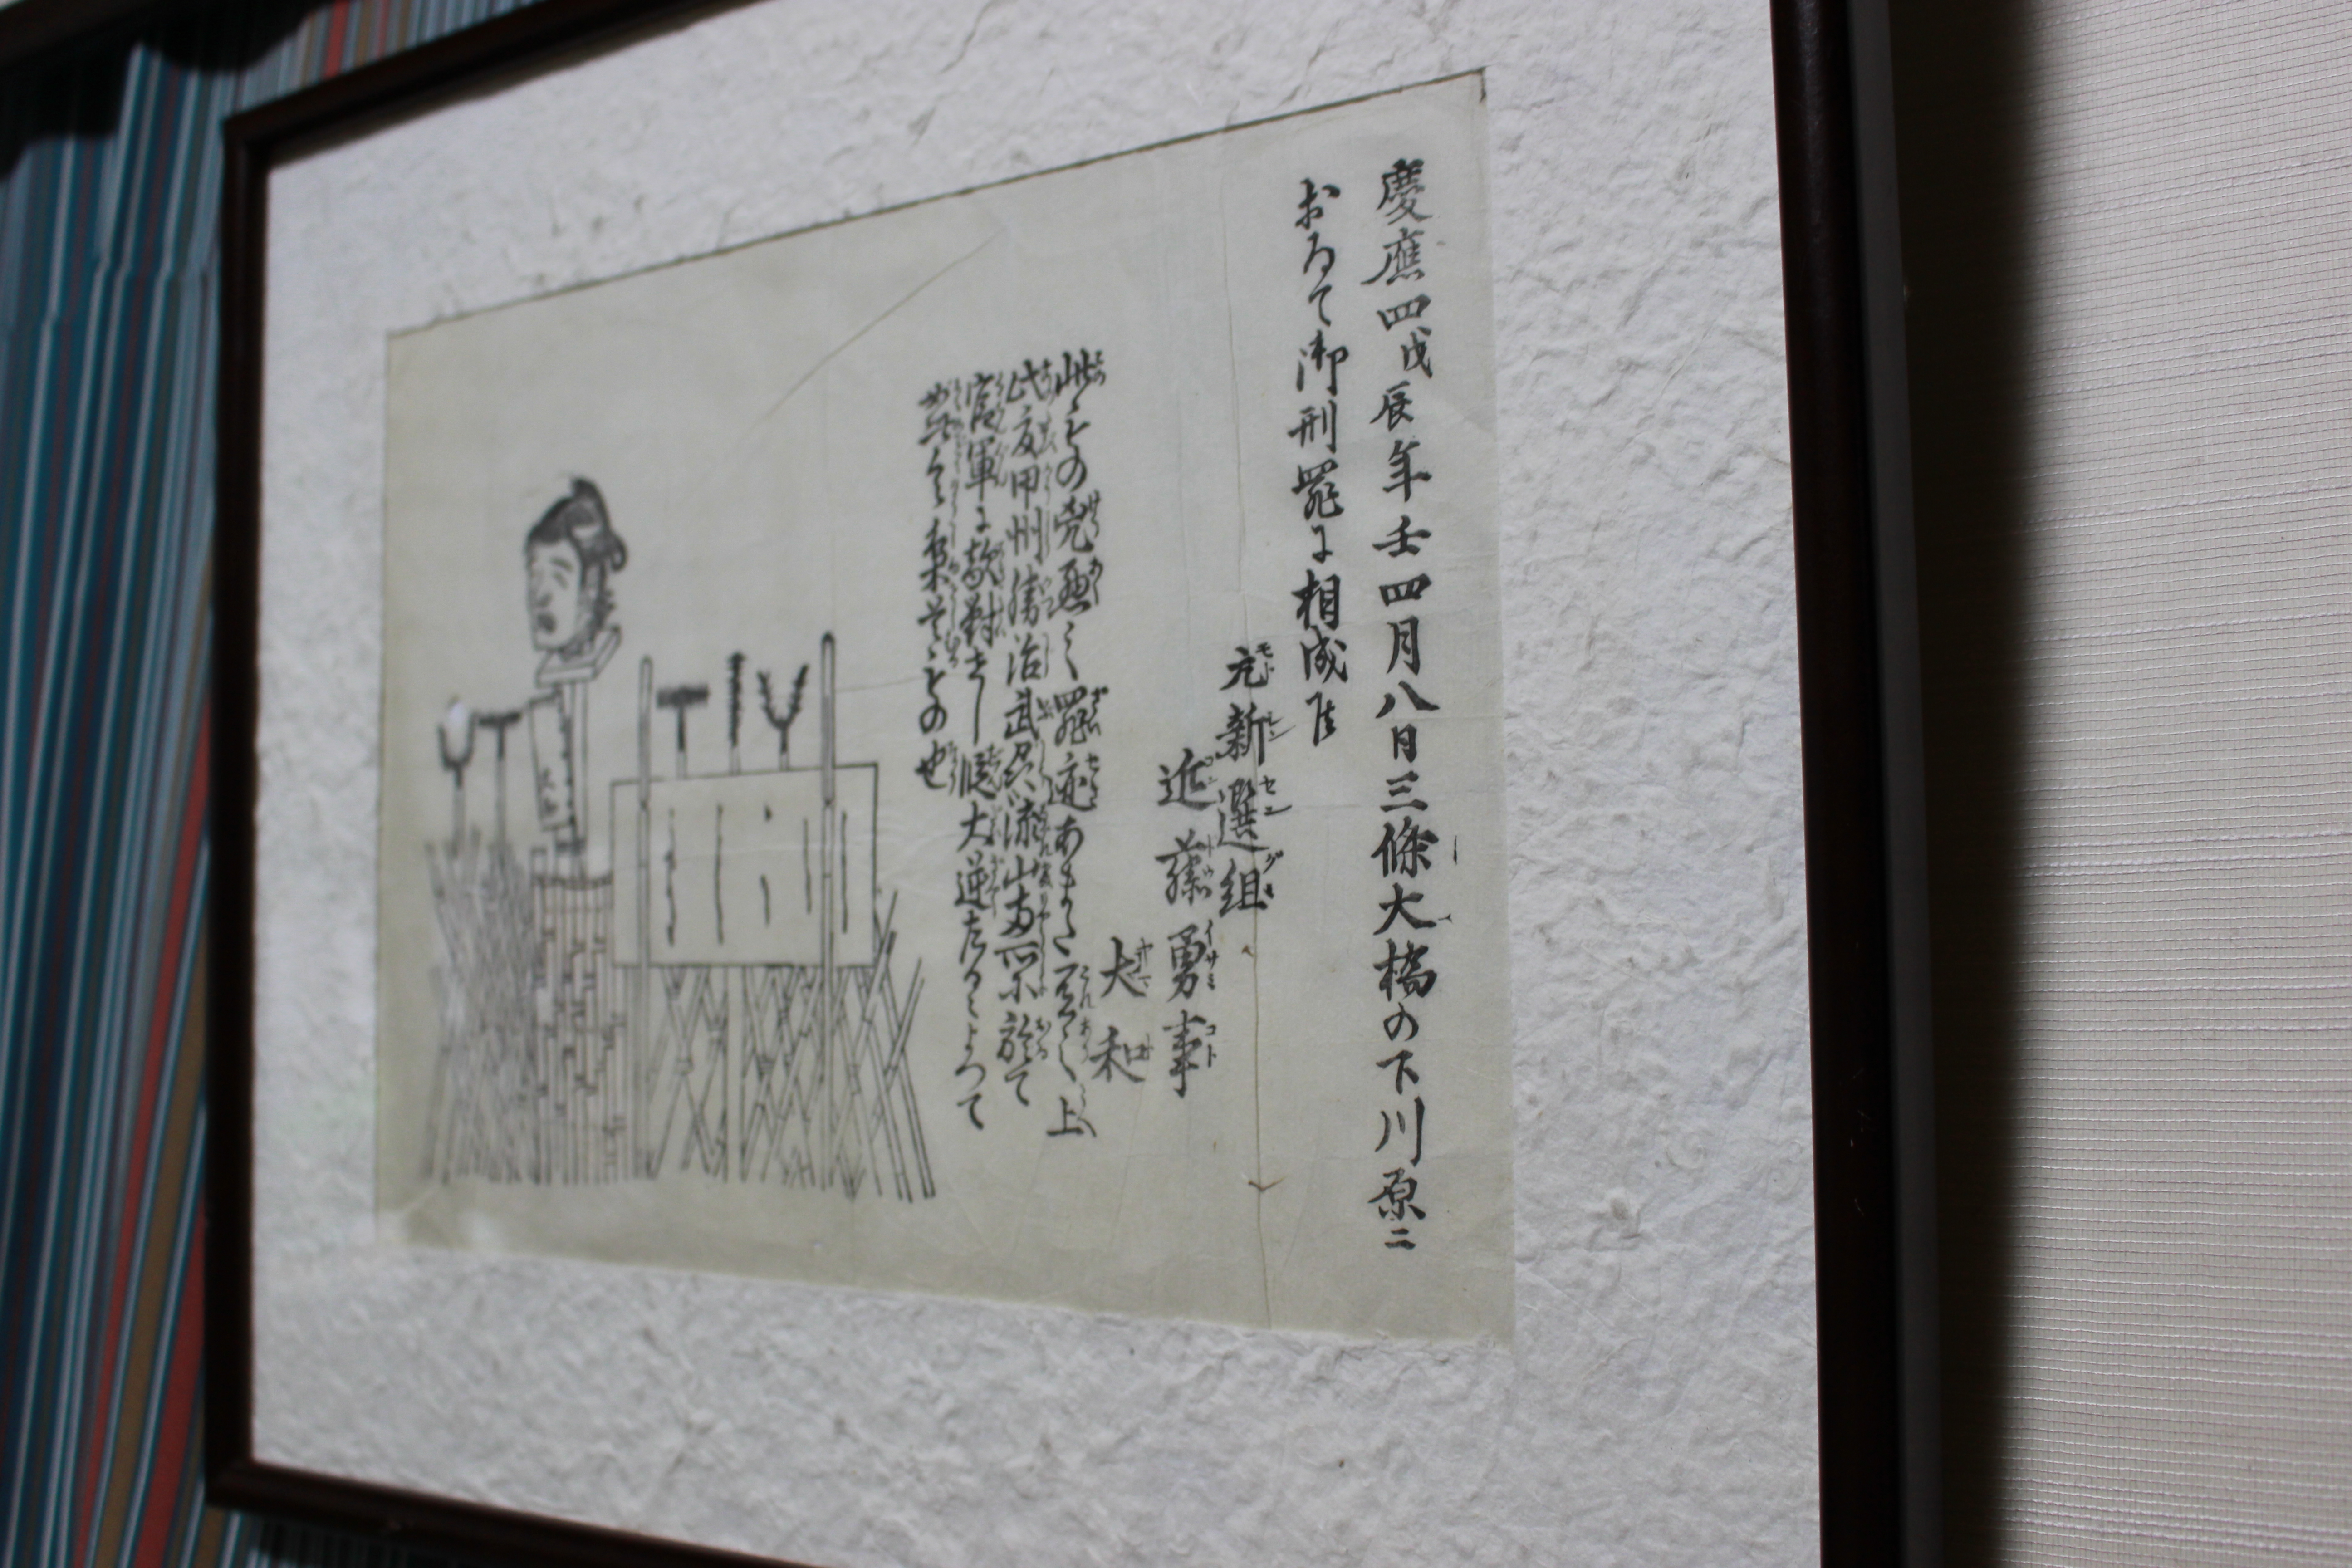 慶應四戊辰年壬四月八日三條大橋の下川原ニ
おゐて御刑罪に相成候
元新選組
近藤勇事
大和
此ものの兇悪之罪迹あまた有之上
此度甲州勝沼武州流山両所於て
官軍に敵對せし段大逆たるによつて
如此令梟首もの也